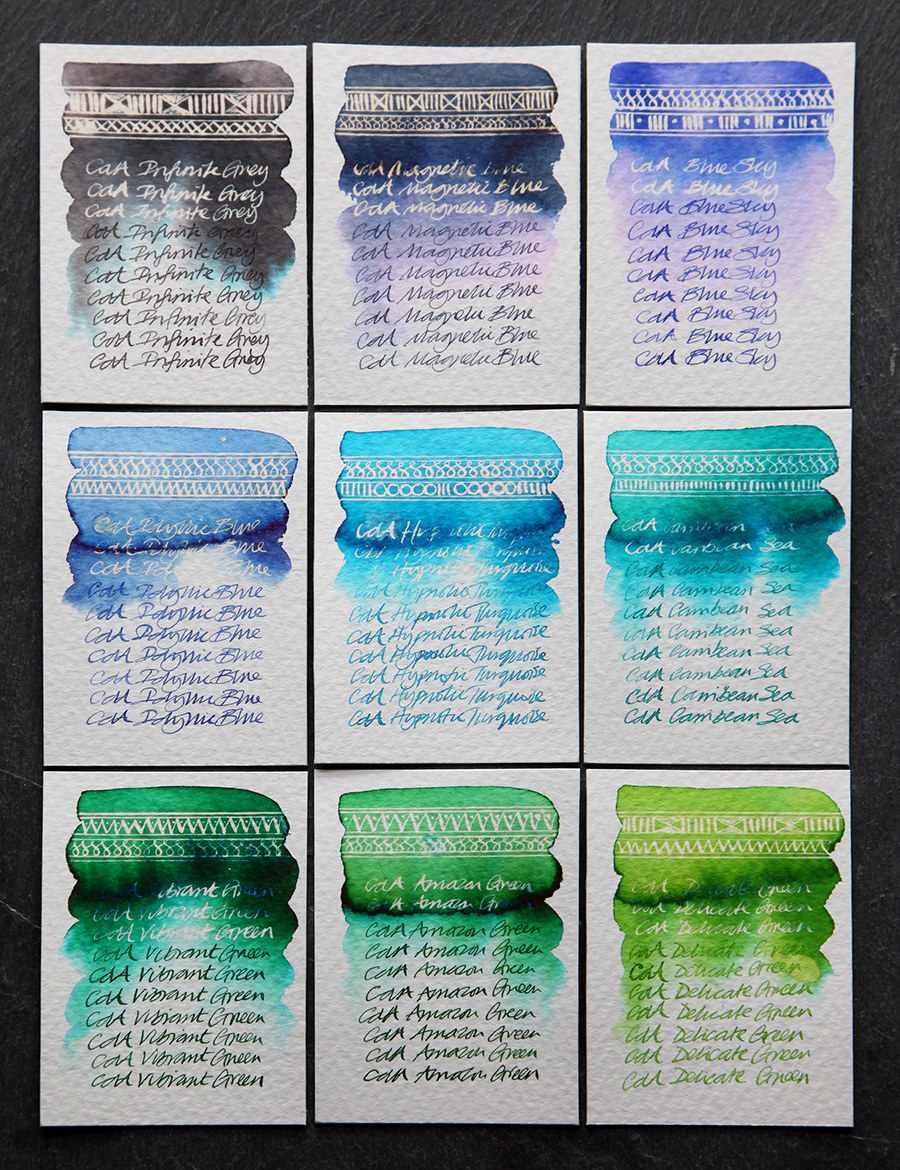 CdA Infinite Grey
CdA Infinite Grey
CdA Infinite Grey
CdA Infinite Grey
CdA Infinite Grey
CdA Infinite Grey
CdA Infinite Grey
CdA Infinite Grey
CdA Infinite Grey
CdA Infinite Grey
CdA Magnetic Blue
CdA Magnetic Blue
CdA Magnetic Blue
CdA Magnetic Blue
CdA Magnetic Blue
CdA Magnetic Blue
CdA Magnetic Blue
CdA Magnetic Blue
CdA Magnetic Blue
CdA Magnetic Blue
CdA Blue Sky
CdA Blue Sky
CdA Blue Sky
CdA Blue Sky
CdA Blue Sky
CdA Blue Sky
CdA Blue Sky
CdA Blue Sky
CdA Blue Sky
CdA Blue Sky
CdA Idyllic Blue
CdA Idyllic Blue
CdA Blue
CdA Idyllic Blue
CdA Idyllic Blue
CdA Idyllic Blue
CdA Idyllic Blue
CdA Idyllic Blue
CdA Idyllic Blue
CdA Idyllic Blue
CdA Hypnotic Turquoise
CdA Hypnotic Turquoise
Hypnotic Turquoise
CdA Hypnotic Turquoise
CdA Hypnotic Turquoise
CdA Hypnotic Turquoise
CdA Hypnotic Turquoise
CdA Hypnotic Turquoise
CdA Hypnotic Turquoise
CdA Hypnotic Turquoise
CdA Caribbean
CdA Caribbean Sea
CdA Caribbean Sea
CdA Caribbean Sea
CdA Caribbean Sea
CdA Caribbean Sea
CdA Caribbean Sea
CdA Caribbean Sea
CdA Caribbean Sea
CdA Caribbean Sea
Vibrant Green
CdA Vibrant Green
CdA Vibrant Green
CdA Vibrant Green
CdA Vibrant Green
CdA Vibrant Green
CdA Vibrant Green
CdA Vibrant Green
CdA Vibrant Green
CdA Vibrant Green
CdA Amazon Green
CdA Amazon Green
CdA Amazon Green
CdA Amazon Green
CdA Amazon Green
CdA Amazon Green
CdA Amazon Green
CdA Amazon Green
CdA Amazon Green
CdA Amazon Green
CdA Delicate Green
CdA Delicate Green
CdA Delicate Green
CdA Delicate Green
CdA Delicate Green
CdA Delicate Green
CdA Delicate Green
CdA Delicate Green
CdA Delicate Green
CdA Delicate Green